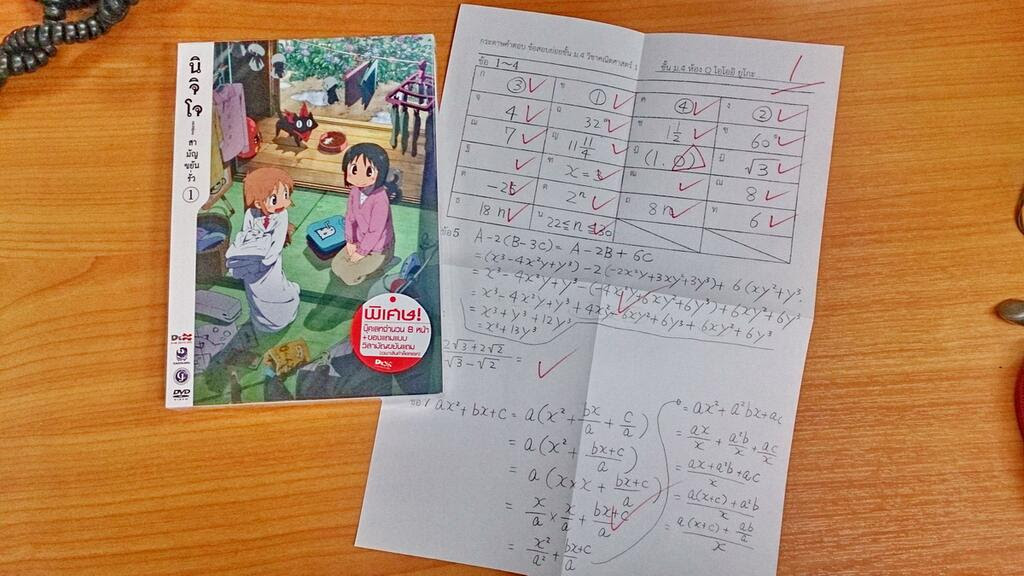 นิจิโจ
สามัญขยันรั่ว
1
DVD
พิเศษ!
บุ๊คเลทจำนวน 8 หน้า
+ของแถมแบบ
วิสามัญขยันแถม
DEX
กระดาษคำตอบ ข้อสอบย่อยชั้น ม.4 วิชาคณิตศาสตร์ 1
ชั้น ม.4 ห้อง Q ไอโออิ ยูโกะ
1
ข้อ 1~4
③ ① ④ ②
4 32 1 1/2 60°
7 11 11/4 (1. 0) √3
x = 8
-25 2ⁿ 8
18 n 22 ≤ n ≤ 30 8 n 6
ข้อ5 A-2(B-3C) = A-2B+6C
=(x³-4x²y+y³)-2(-2x²y+3xy²+3y³)+6(xy²+y³
=x³-4x²y+y³-(-4x²y+6xy²+6y³)+6xy²+6y³
=x³-4x²y+y³+4x²y-6xy²+6y³+6xy²+6y³
=x³+y³+12y³
=x³+13y³
2√3+2√2 / √3-√2 =
ax²+bx+c = a(x²+bx/a+c/a)
= a(x²+bx+c/a)
= a(x×x+bx+c/a)
= x/a×x/a+bx+c/a
= x²/a²+bx+c/a
= ax²+a²bx+ac
= ax/x+a²b/x+ac/x
= ax+a²b+ac/x
= a(x+c)+a²b/x
= a(x+c)+ab/a/x